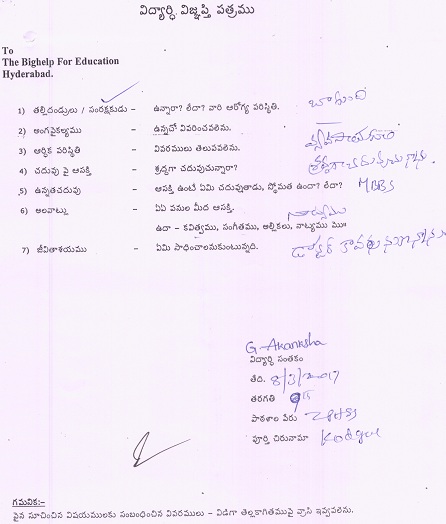 విద్యార్ధి విజ్ఞప్తి పత్రము
To
The Bighelp For Education
Hyderabad.
1) తల్లిదండ్రులు / సంరక్షకుడు – ఉన్నారా? లేదా? వారి ఆరోగ్య పరిస్థితి. బాగుంది
2) అంగవైకల్యము – ఉన్నచో వివరించవలెను.
3) ఆర్థిక పరిస్థితి – వివరములు తెలుపవలెను.
4) చదువు పై ఆసక్తి – శ్రద్ధగా చదువుచున్నారా?
5) ఉన్నతచదువు – ఆసక్తి ఉంటే ఏమి చదువుతాడు, స్తోమత ఉందా? లేదా? MBBS
6) అలవాట్లు – ఏఏ పనుల మీద ఆసక్తి. నాట్యము
ఉదా – కవిత్వము, సంగీతము, అల్లికలు, నాట్యము ము॥
7) జీవితాశయము – ఏమి సాధించాలనుకుంటున్నది. డాక్టర్ కావాలనుకున్నాను
G-Akanksha
విద్యార్ధి సంతకం
తేది.
తరగతి
పాఠశాల పేరు ZPHSS
పూర్తి చిరునామా
గమనిక:-
పైన సూచించిన విషయములకు సంబంధించిన వివరములు – విడిగా తెల్లకాగితముపై వ్రాసి ఇవ్వవలెను.